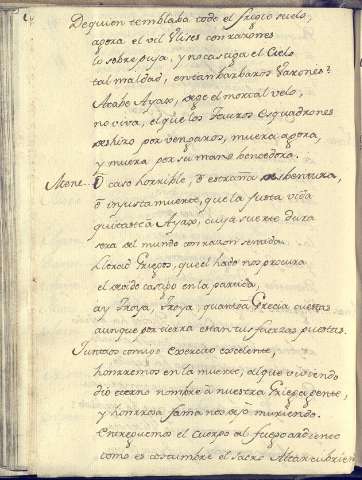 De quien temblaba todo el frigio suelo,
agora el vil Ulises con razones
lo sobrepuja, y no castiga el Cielo
tal maldad, en tan barbaros varones?
Acabe Ayax, deje el mortal velo,
no viva, el que los Teucros Esquadrones
deshizo por vengaros, muera agora,
y muera por su mano bencedora.
Mene... O caso horrible, ô estraña desbentura,
ô injusta muerte, que la justa vida
quitaste a Ayax, cuya suerte dura
sera del mundo con razon sentida.
Griegos, que el hado nos procura
el castigo en la partida,
ay Troya, Troya, quanto a Grecia cuestas
aunque por tierra estan tus fuerzas puestas.
Juntaos comigo Exercito excelente,
honraremos en la muerte, al que viviendo
dio eterno nombre â nuestra Griega gente,
y honrrosa fama nos dejo muriendo.
Entreguemos el cuerpo al fuego ardiente
como es costumbre el Sacro Altar cubrien